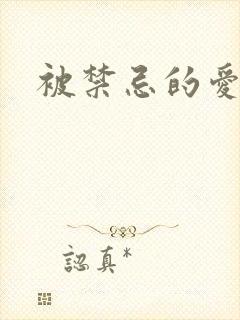 被禁忌的愛
認真*